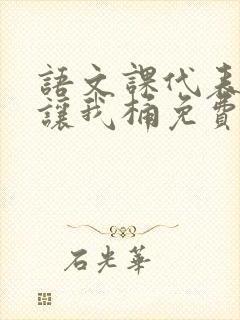 語文課代表
讓我桶免費
石光華